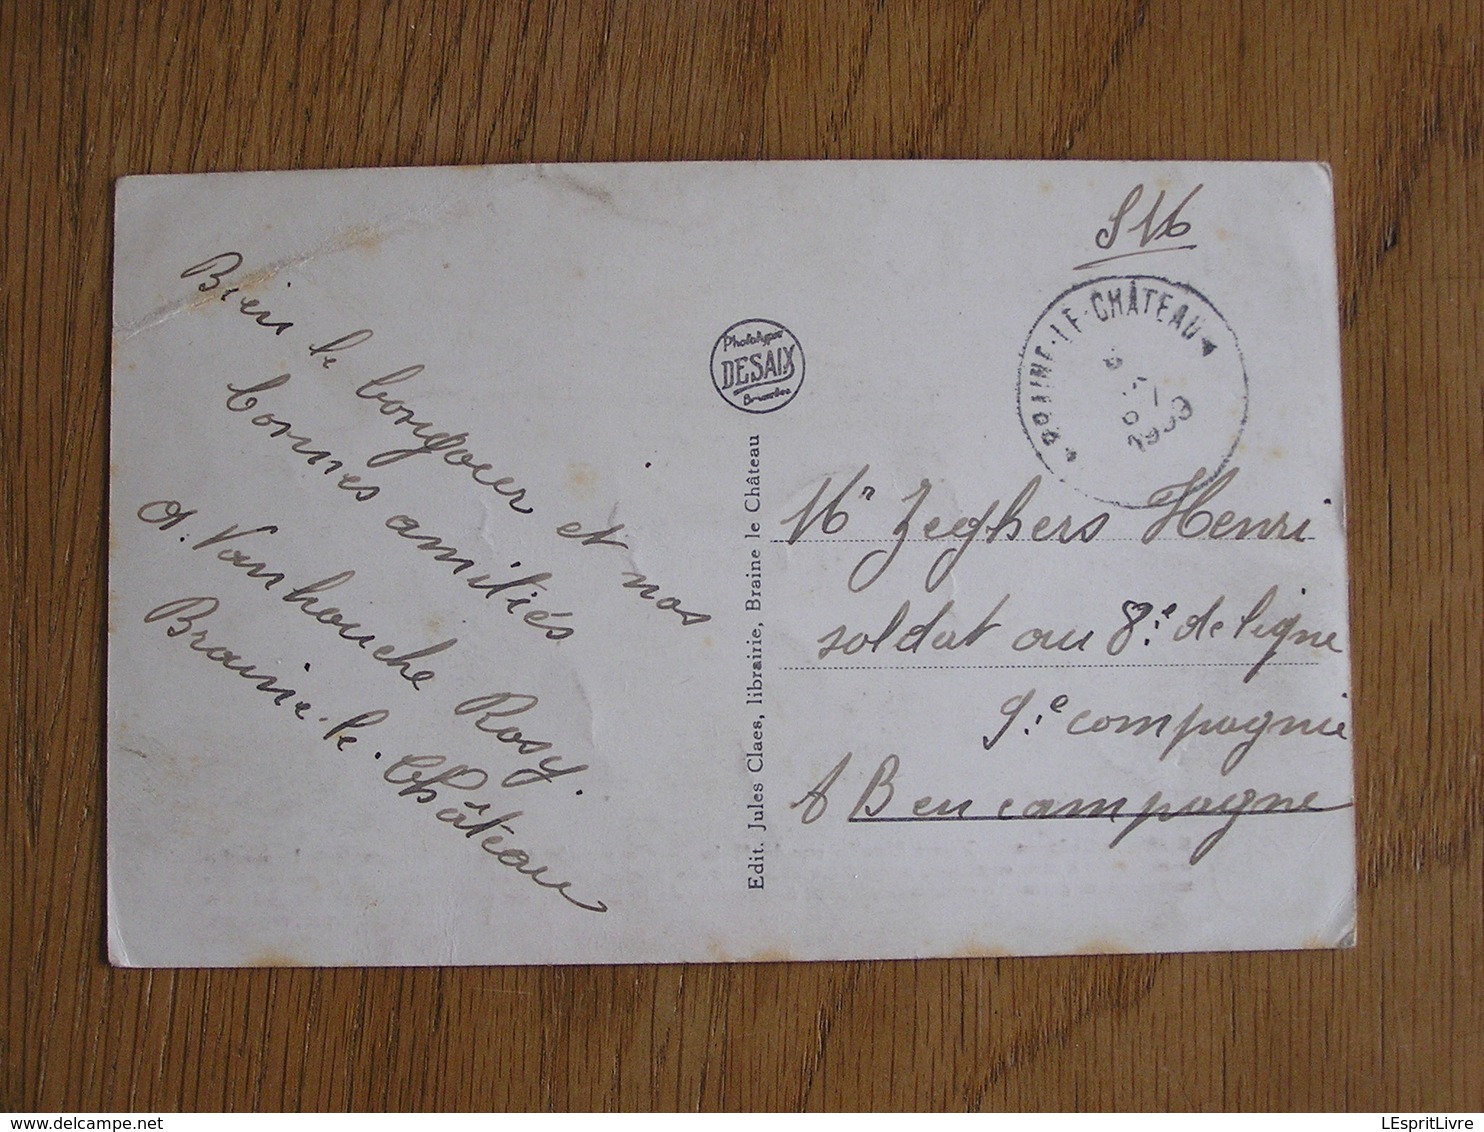 Bien le bonjour et nos
bonnes amitiés
A. Vanhouche Rosy.
Braine-le-Château
Phototypie
DESAIX
Bruxelles
Edit. Jules Claes, librairie, Braine le Château
SM
BRAINE-LE-CHÂTEAU
1939
Mr Zeghers Henri
soldat au 8.e de ligne
9.e compagnie
A B en campagne
delcampe.net
LEspritLivre